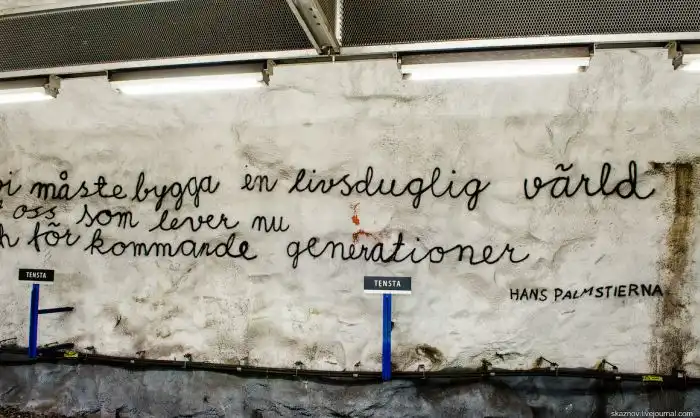 vi måste bygga en livsduglig värld
oss som lever nu
h för kommande generationer
HANS PALMSTIERNA
TENSTA
TENSTA
skaznov.livejournal.com